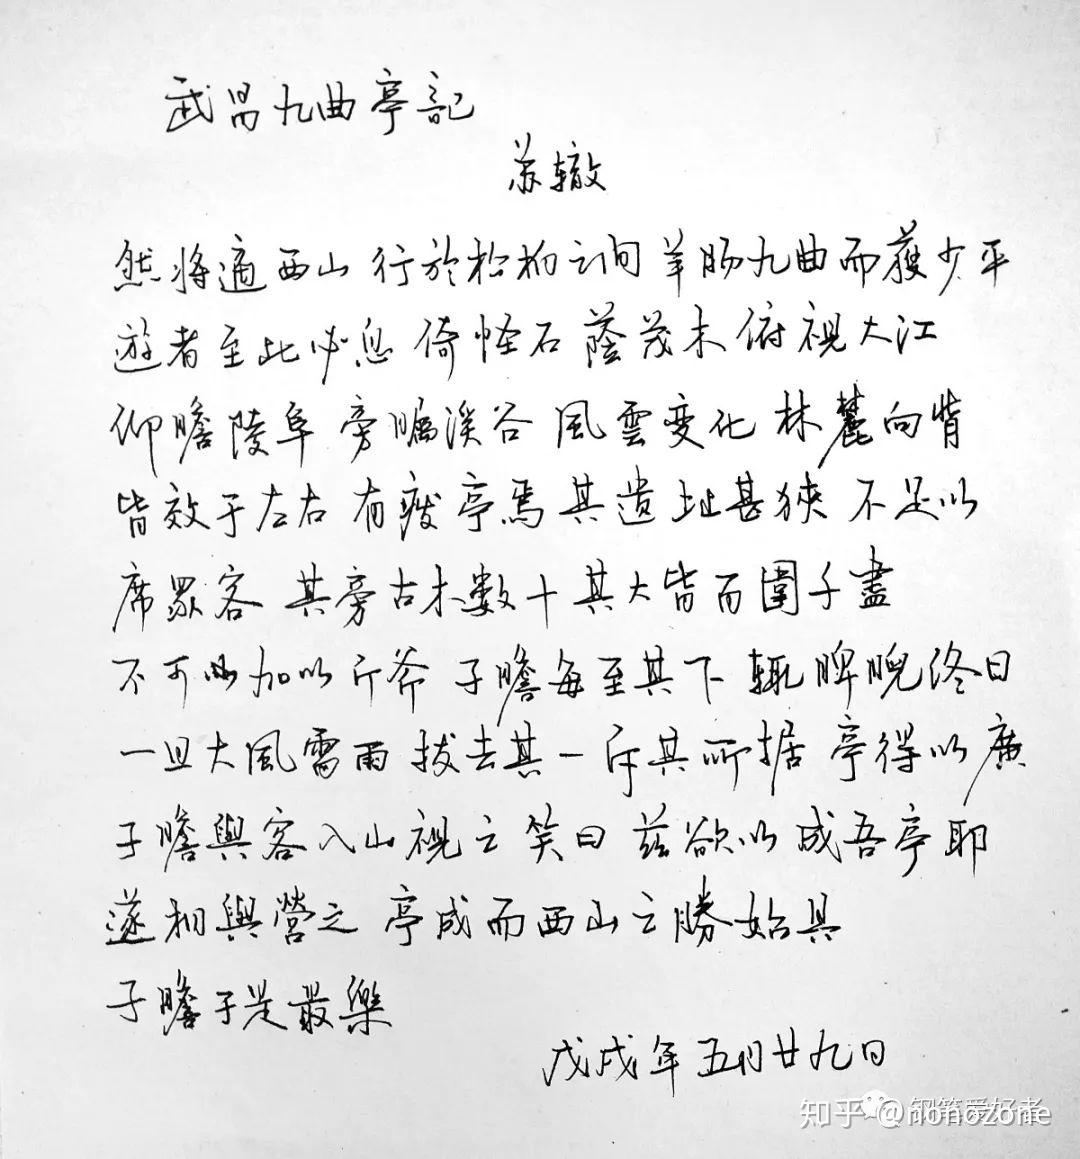 武昌九曲亭記
苏辙
然将適西山 行於松柏之间 羊肠九曲而獲少平
遊者至此必息 倚怪石 蔭茂木 俯視大江
仰瞻陵阜 旁矚溪谷 風雲变化 林麓向背
皆效于左右 有廢亭焉 其遺址甚狹 不足以
席眾客 其旁古木數十 其大皆百圍千盡
不可 加以斤斧 子瞻每至其下 輒睥睨終日
一旦大風雷雨 拔去其一 斥其所据 亭得以廣
子瞻與客入山視之 笑曰 兹欲以成吾亭耶
遂相與營之 亭成而西山之勝始具
子瞻于是最樂
戊戌年五月廿九日
知乎 @nonozone
钢笔爱好者